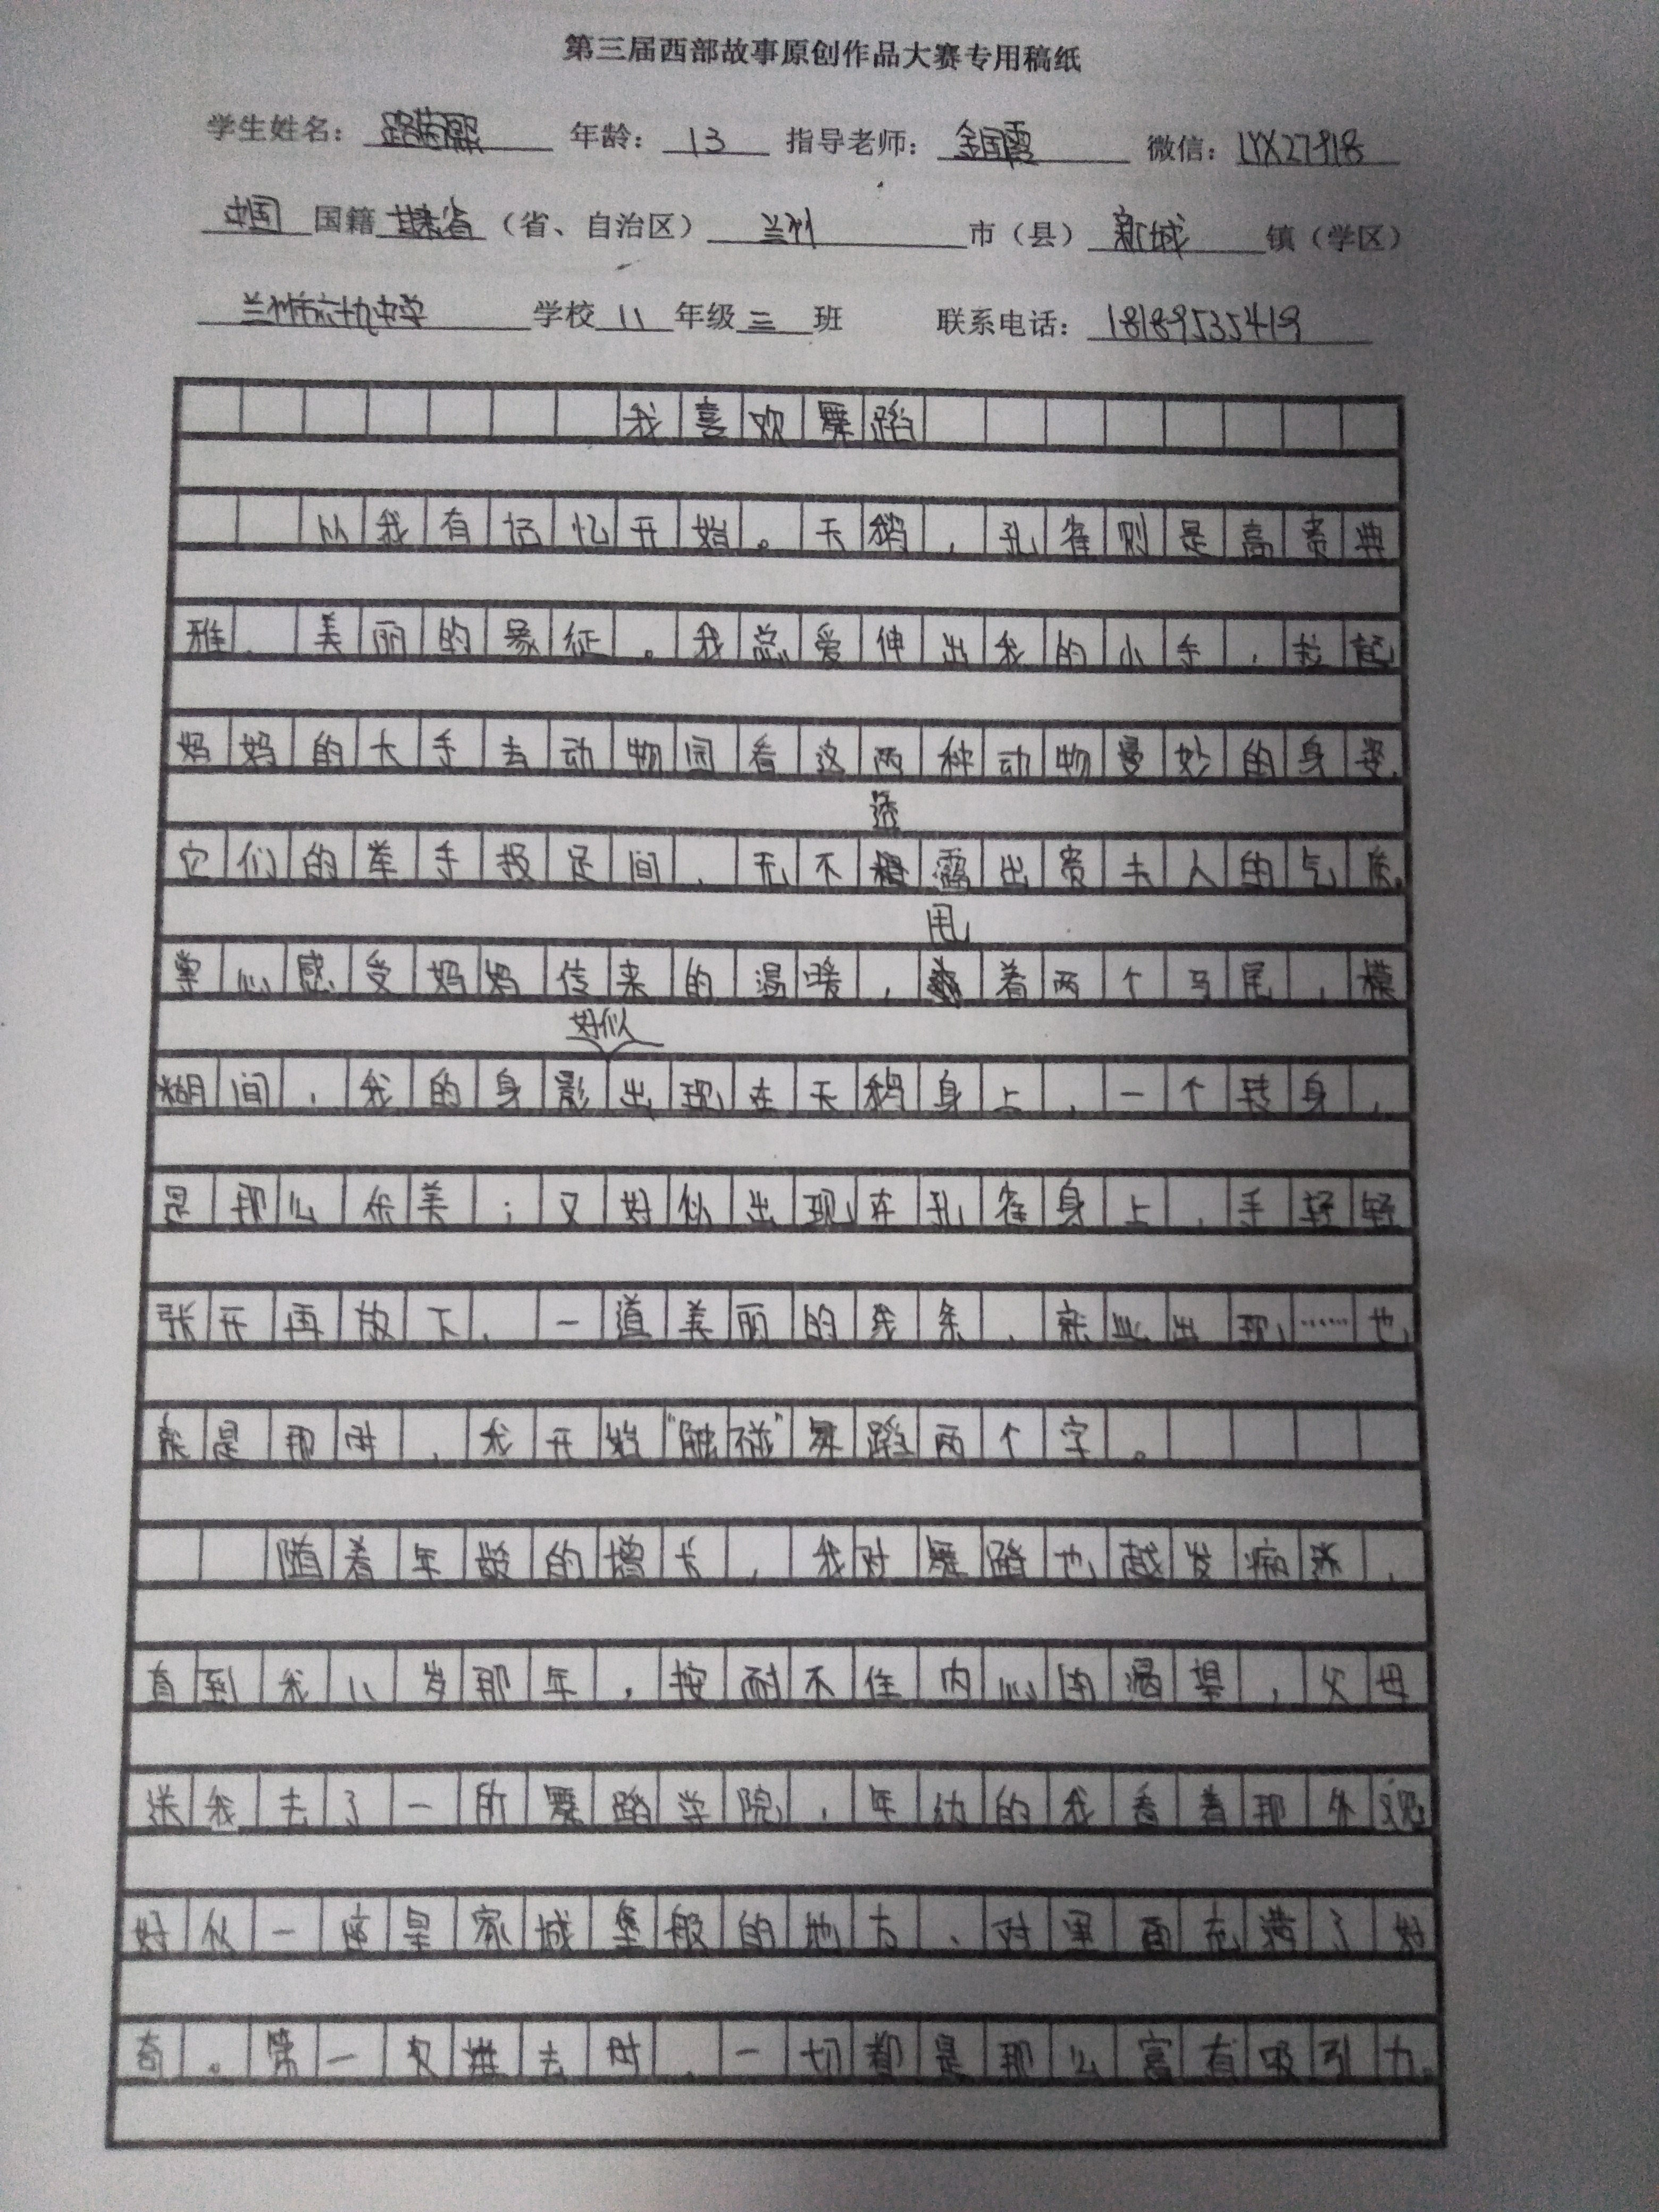 第三届西部故事原创作品大赛专用稿纸
学生姓名： 年龄：13 指导老师：金国霞 微信：LYX27918
中国国籍甘肃省（省、自治区）兰州市（县）新城镇（学区）
兰州市六十九中学学校八年级三班 联系电话：18189535419
我喜欢舞蹈
从我有记忆开始。天鹅，孔雀则是高贵典
雅、美丽的象征。我总爱伸出我的小手，拉起
妈妈的大手去动物园看这两种动物曼妙的身姿，
透
它们的举手投足间，无不露出贵夫人的气质。
甩
掌心感受妈妈传来的温暖，着两个马尾，模
好似
糊间，我的身影出现在天鹅身上，一个转身，
是那么优美；又好似出现在孔雀身上，手轻轻
张开再放下，一道美丽的线条，就此出现……也
就是那时，我开始“触碰”舞蹈两个字。
随着年龄的增长，我对舞蹈也越发痴迷，
直到我八岁那年，按耐不住内心的渴望，父母
送我去了一所舞蹈学院，年幼的我看着那外观
好似一座皇家城堡般的地方，对里面充满了好
奇。第一次进去时，一切都是那么富有吸引力。